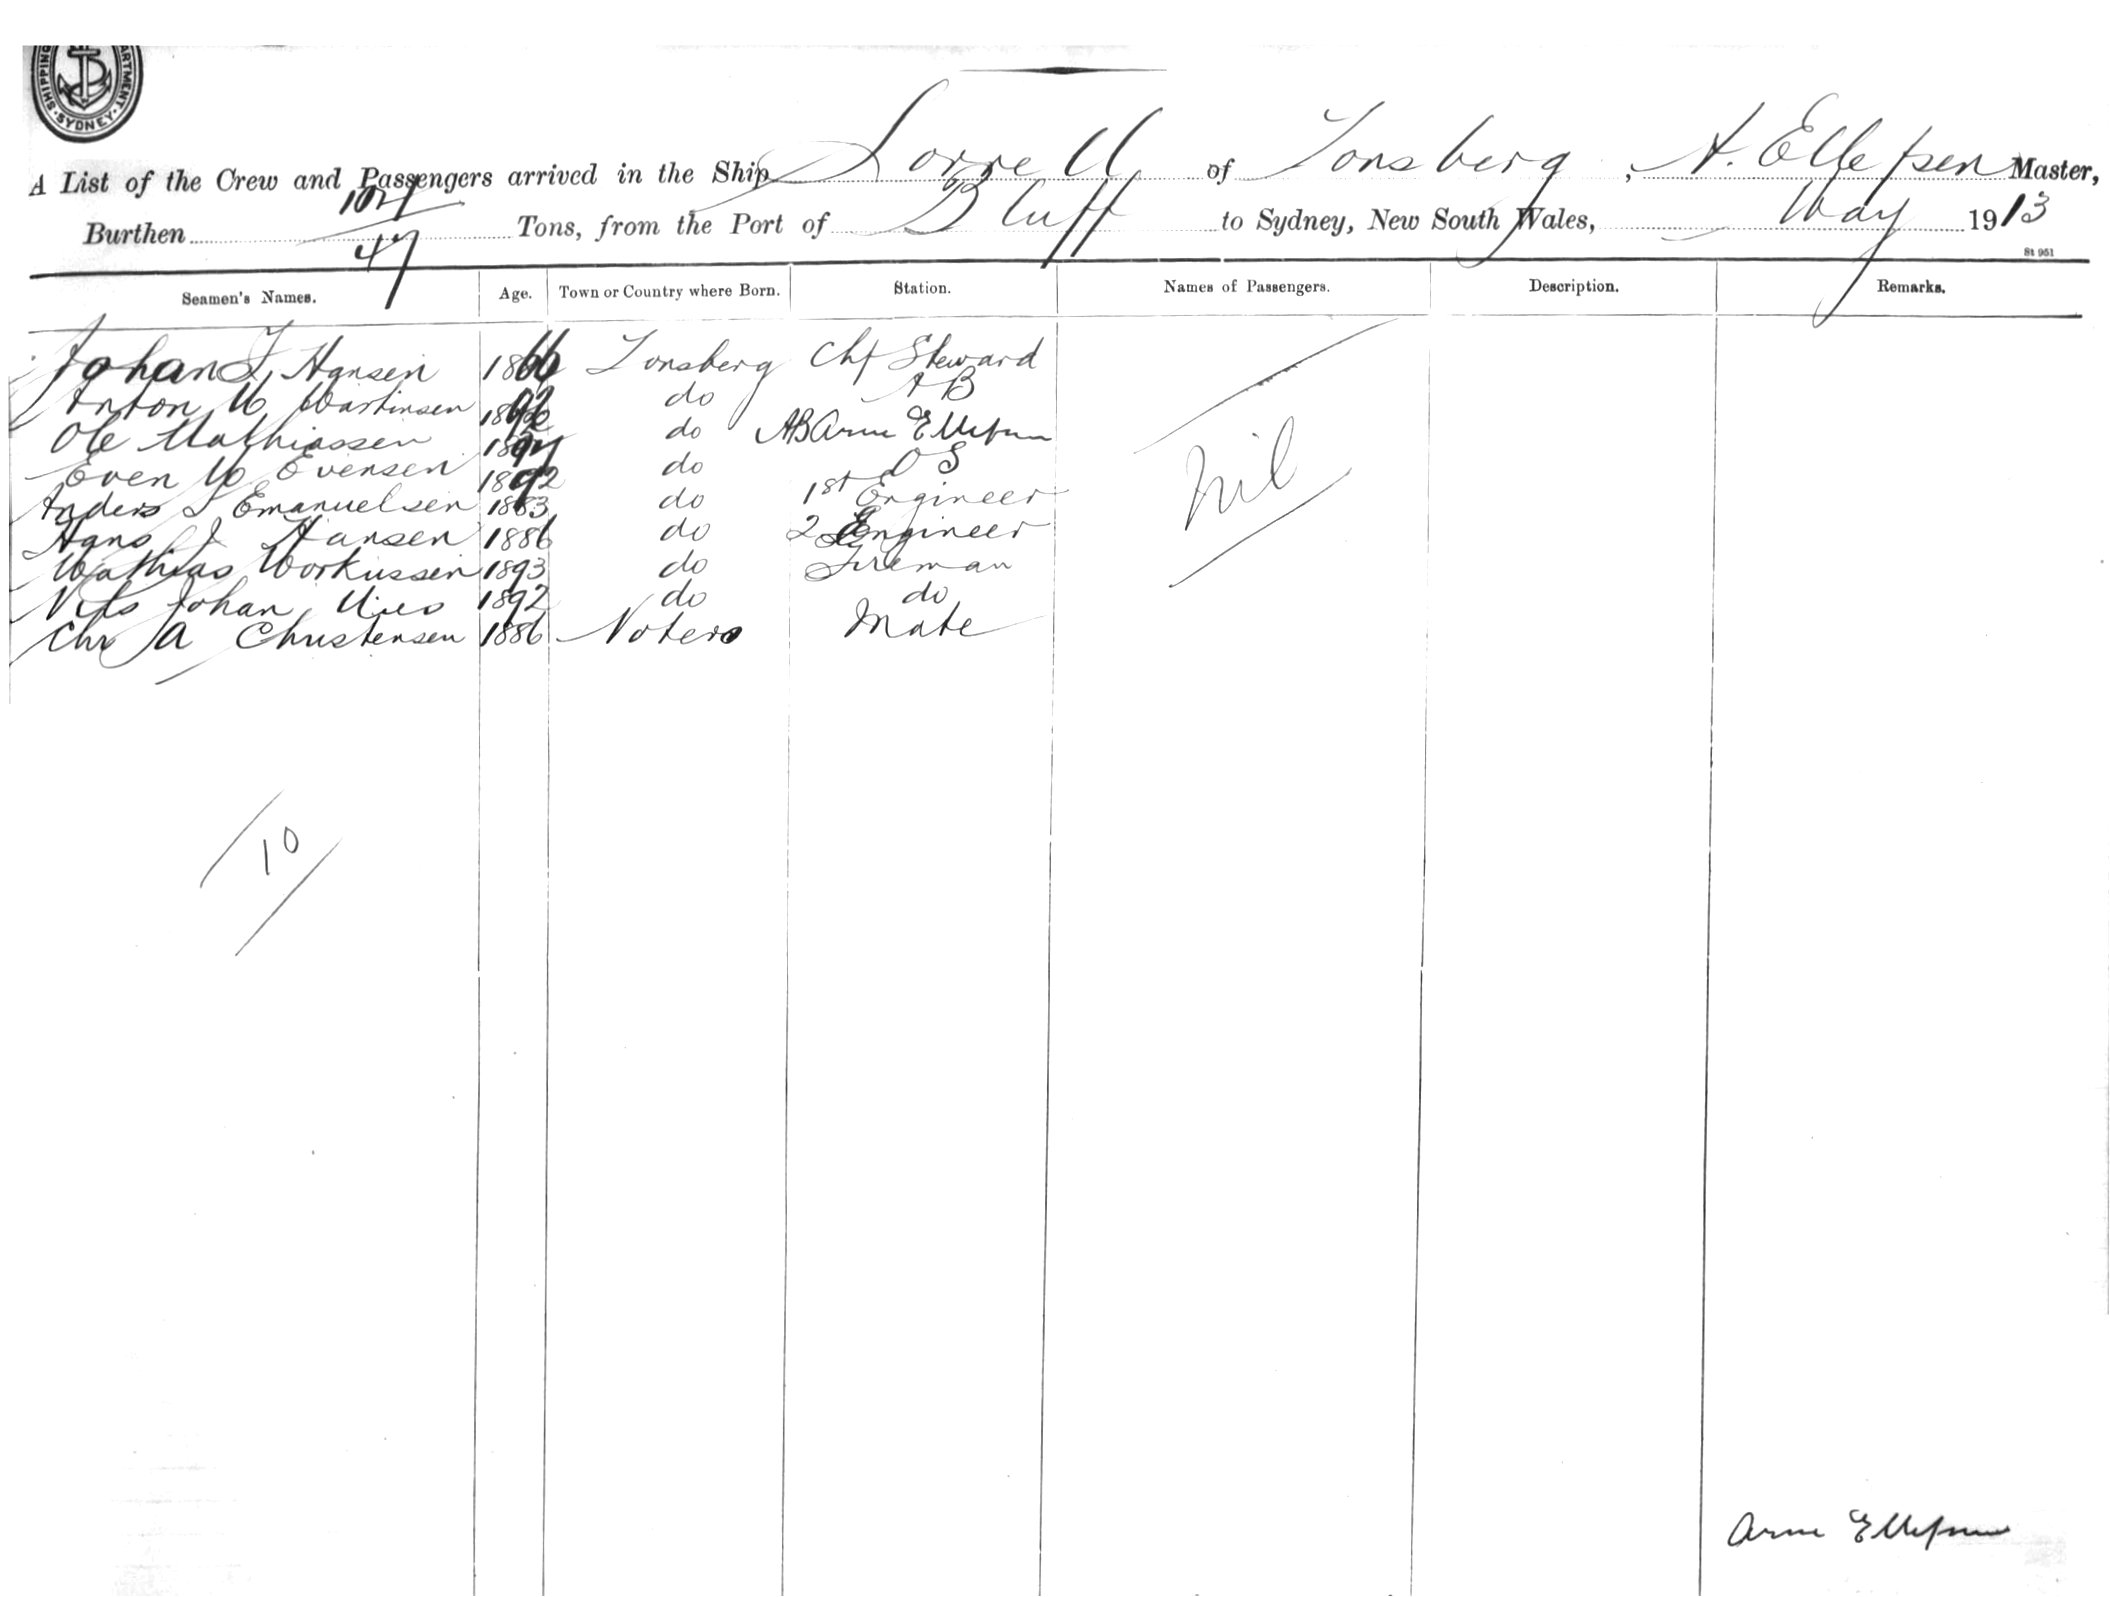 SHIPPING DEPARTMENT SYDNEY
A List of the Crew and Passengers arrived in the Ship Sorrell of Tonsberg, A. Ellefsen Master,
Burthen 47 Tons, from the Port of Bluff to Sydney, New South Wales, May 1913
St 951
Seamen's Names. Age. Town or Country where Born. Station. Names of Passengers. Description. Remarks.
Johan T Hansen 1866 Tonsberg Chf Steward nil
Anton M Martinsen do AB
Ole Mathiassen do AB Arne Ellefsen
Even M Evensen 1892 do OS
Anders L Emanuelsen 1883 do 1st Engineer
Hans J Hansen 1886 do 2 Engineer
Mathias Morkussen 1893 do Fireman
Nils Johan 1892 do do
Chr A Christensen 1886 Notero Mate
10
Arne Ellefsen